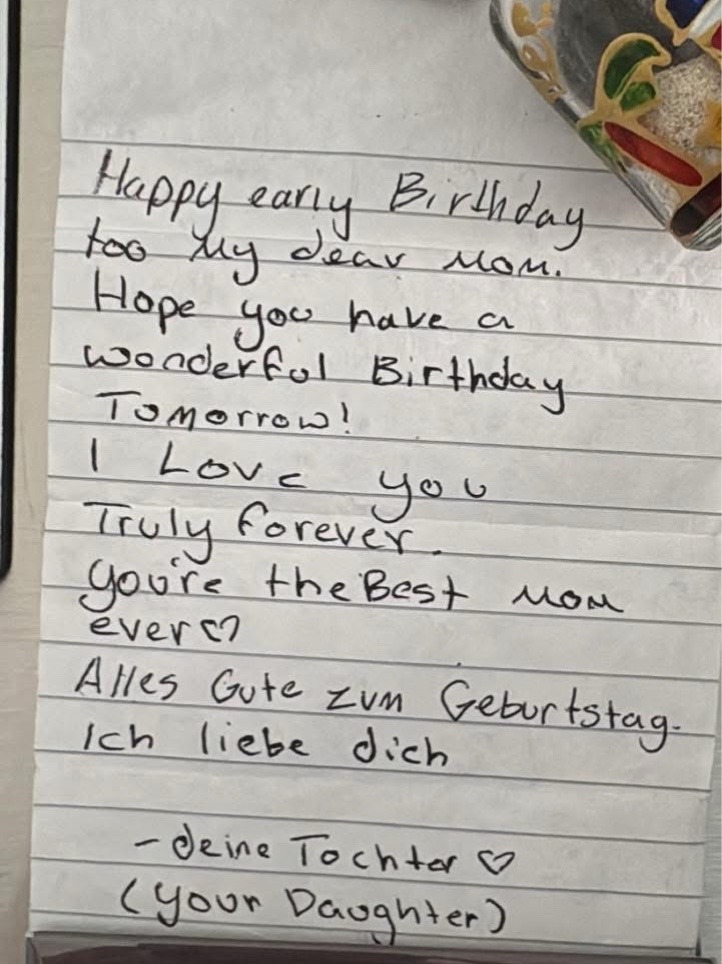 Happy early Birthday
too My dear Mom.
Hope you have a
wonderful Birthday
Tomorrow!
I Love you
Truly forever.
you're the Best Mom
ever♡
Alles Gute zum Geburtstag.
Ich liebe dich
- deine Tochter ♡
(your Daughter)